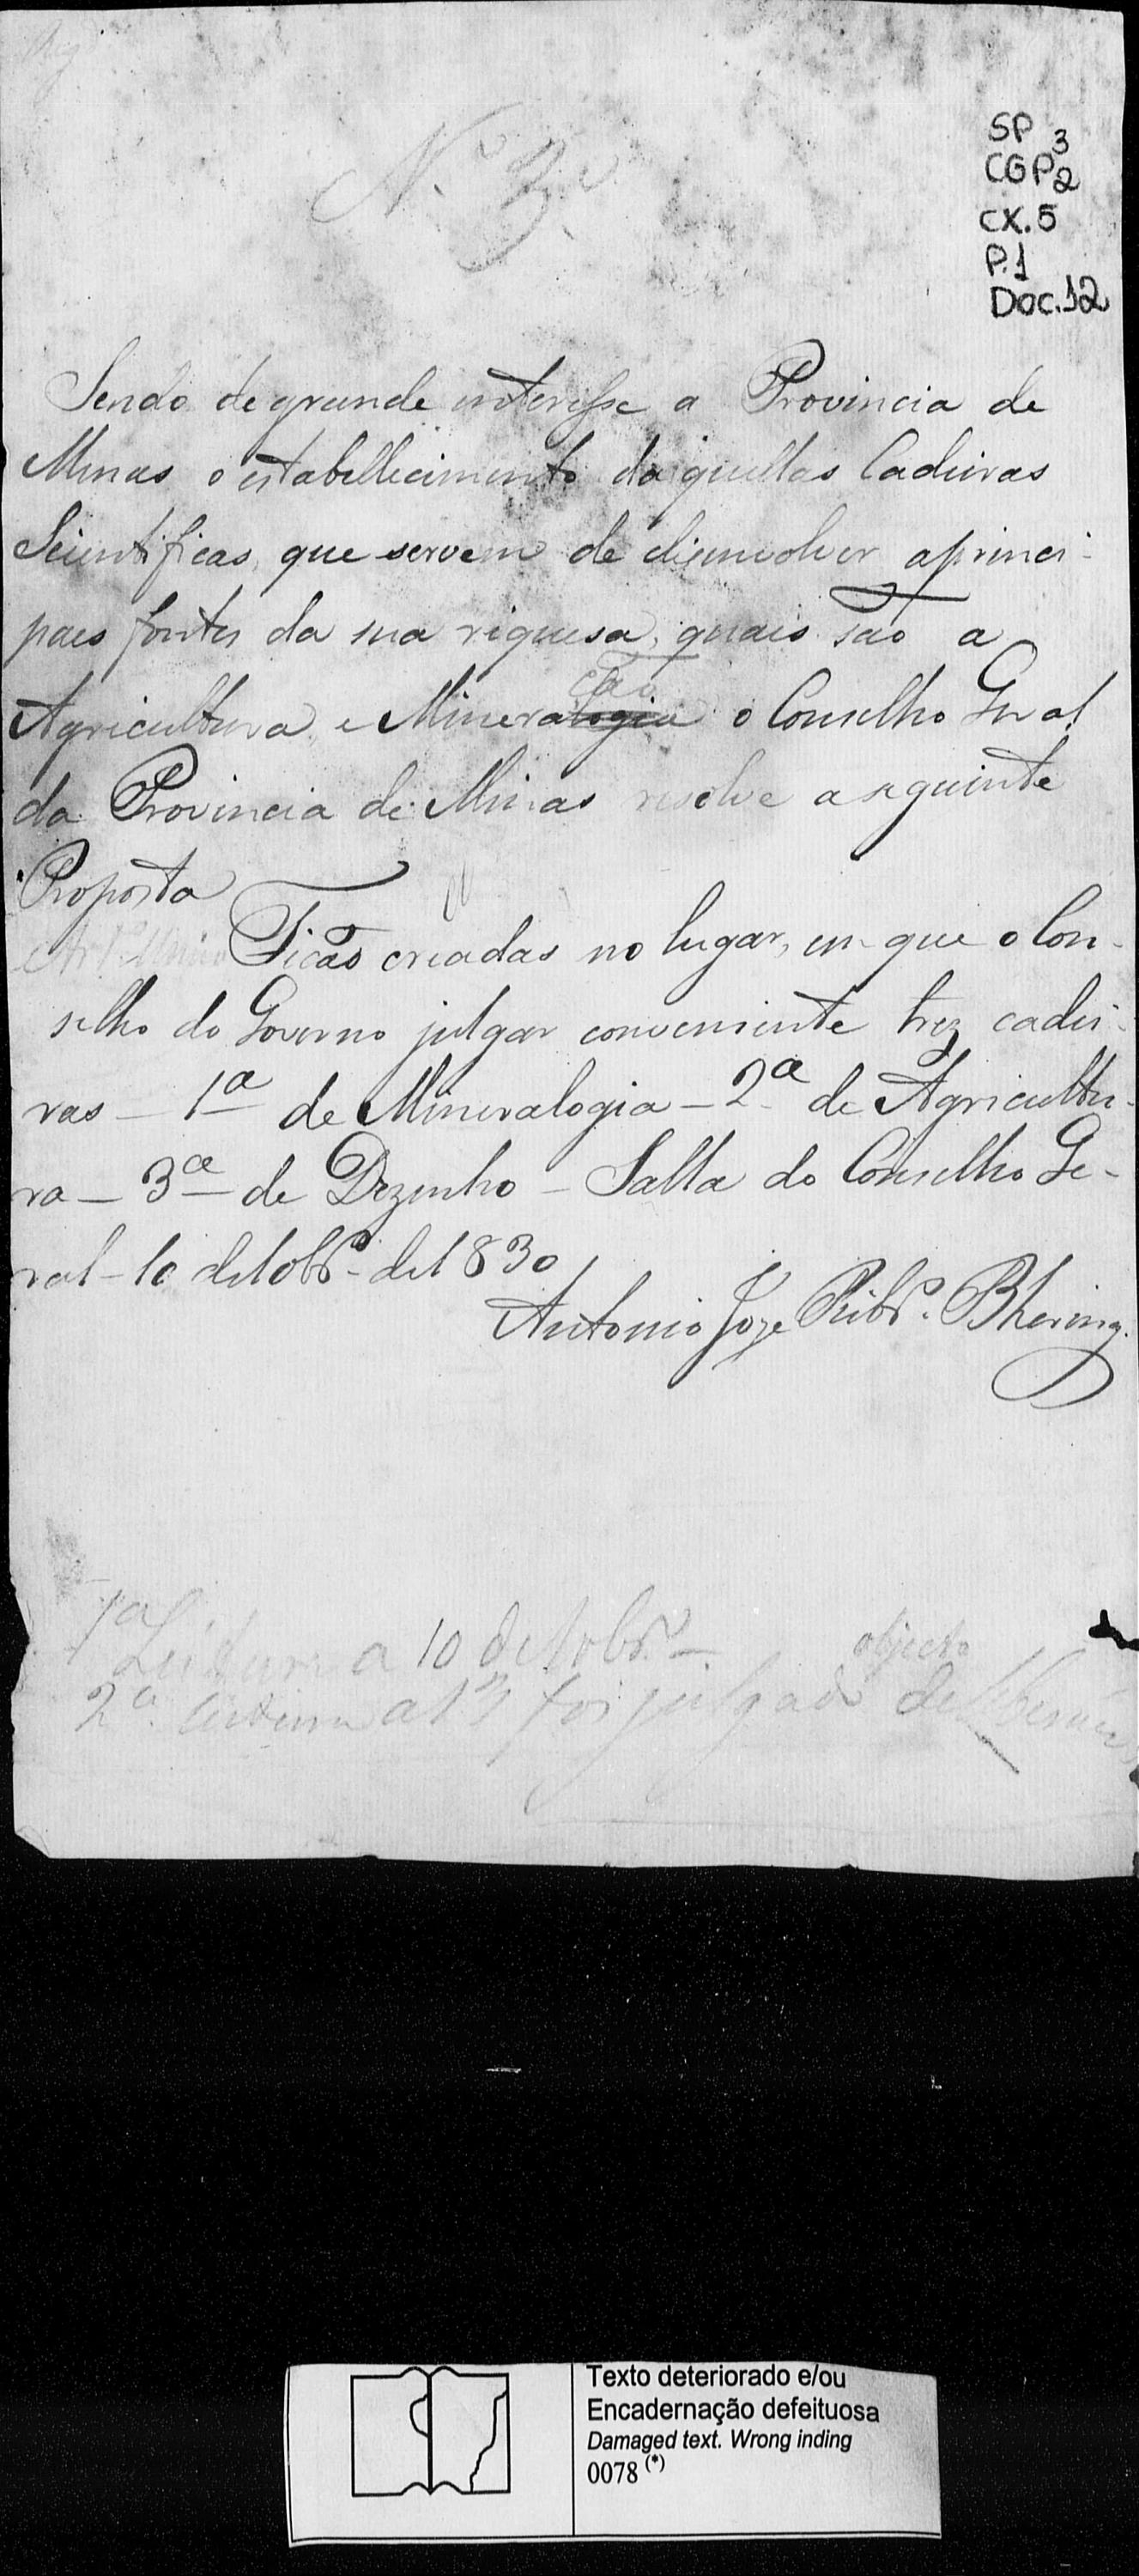 N.º 3.º
SP 3
CGP 2
CX. 5
P. 1
Doc. 12
Sendo de grande interesse a Provincia de
Minas o estabellecimento da quellas Cadeiras
Scientificas, que servem de disenvolver aprinci-
paes fontes da sua riquesa, quais são a
ção
Agricultura, e Mineralogia o Conselho Geral
da Provincia de Minas resolve a seguinte
Proposta
Art.º Unico Ficão creadas no lugar, em que o Con-
selho do Governo julgar conveniente trez cadei-
ras - 1ª de Mineralogia - 2ª de Agricultu-
ra - 3ª de Dezenho - Salla do Conselho Ge-
ral - 10 de 10br.º de 1830
Antonio Joze Ribr.º Bhering.
1ª Leitura a 10 de 10br.º -
objecto
2ª leitura a 13 foi julgado de
Texto deteriorado e/ou
Encadernação defeituosa
Damaged text. Wrong inding
0078 (*)